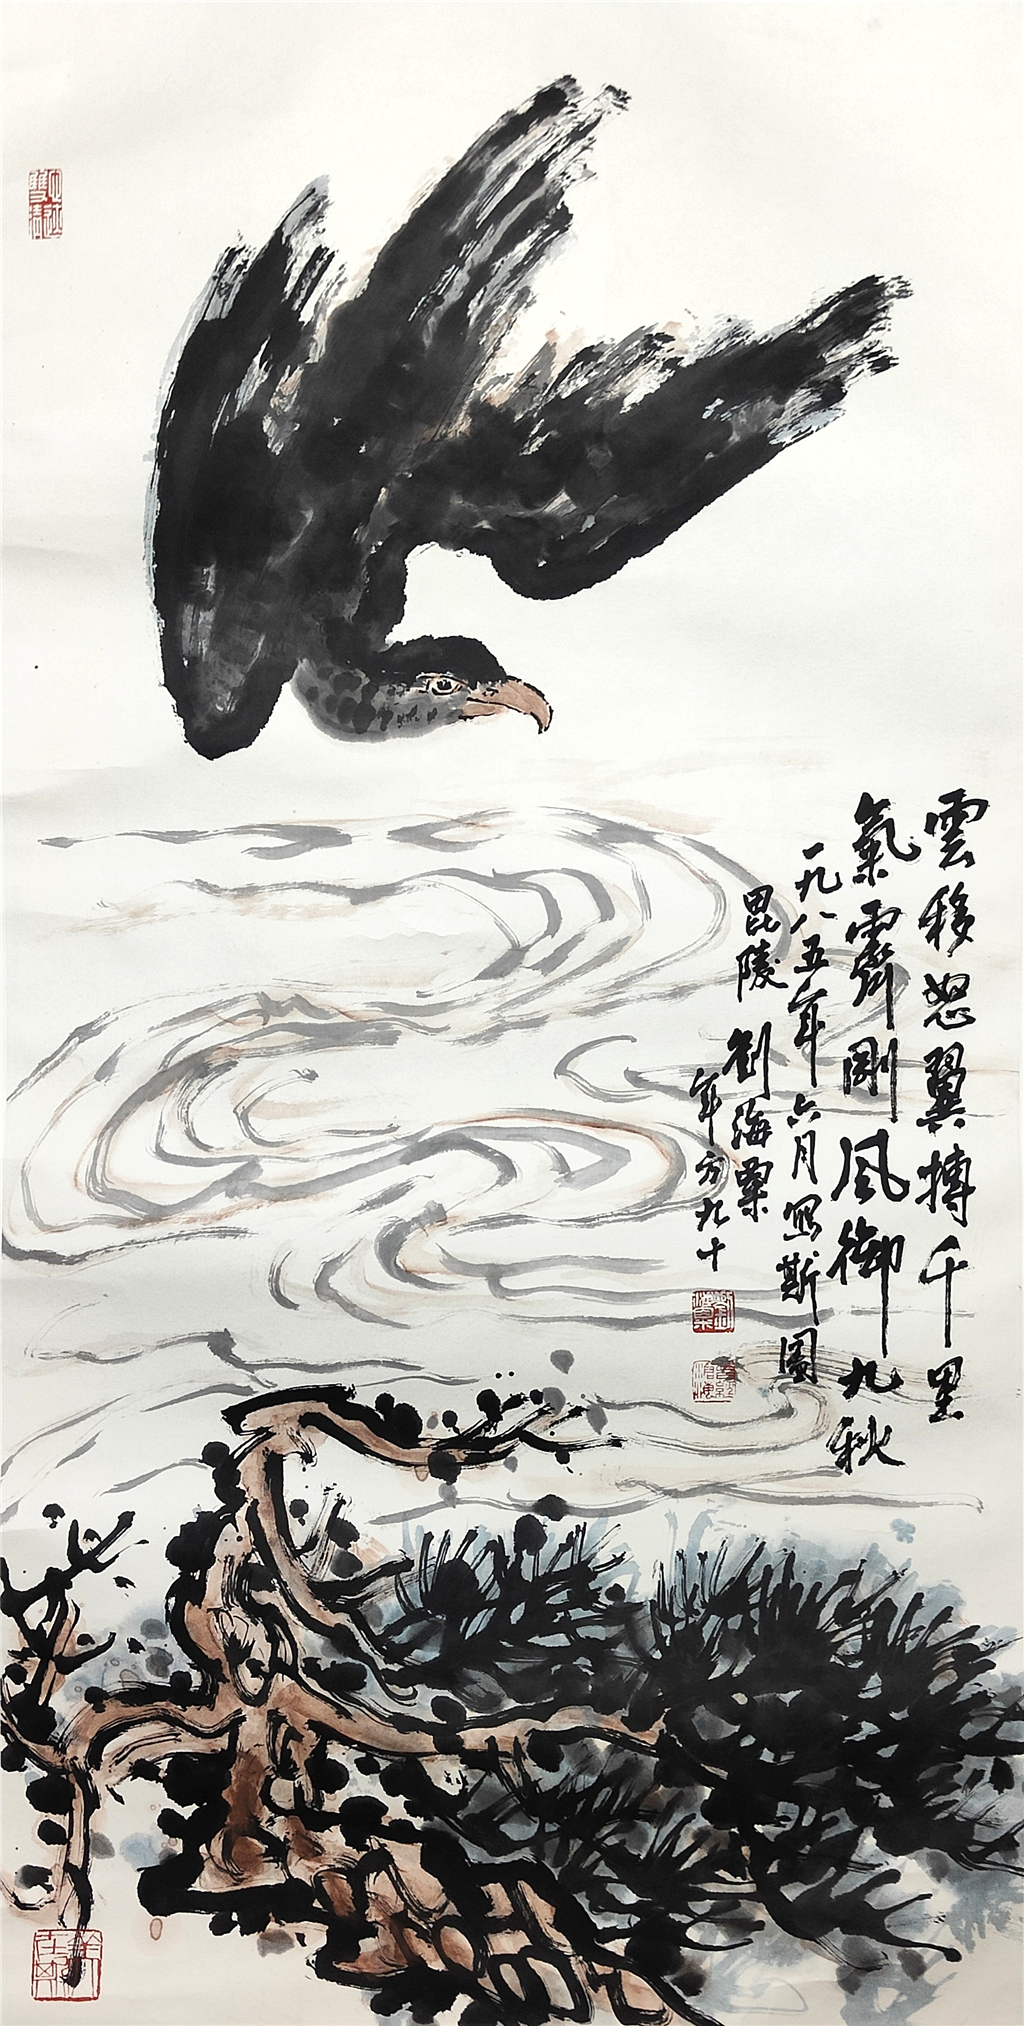 雲移怒翼搏千里
氣霽剛風御九秋
一九八五年六月寫斯圖
毘陵 劉海粟
年方九十
劉海粟